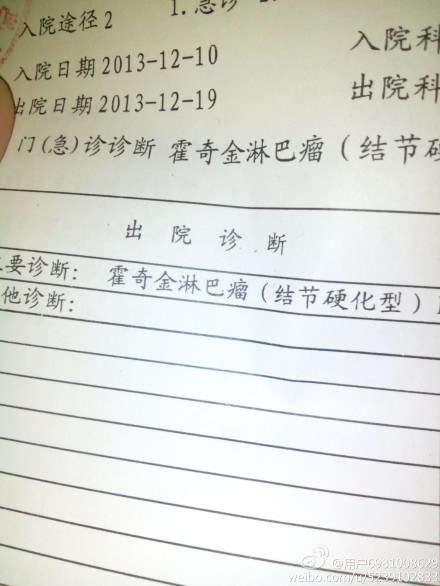 入院途径2 1.急诊
入院科
入院日期2013-12-10
出院科
出院日期2013-12-19
门(急)诊诊断 霍奇金淋巴瘤(结节硬
出院诊断
主要诊断: 霍奇金淋巴瘤(结节硬化型)
他诊断:
weibo.com/u/5239102833